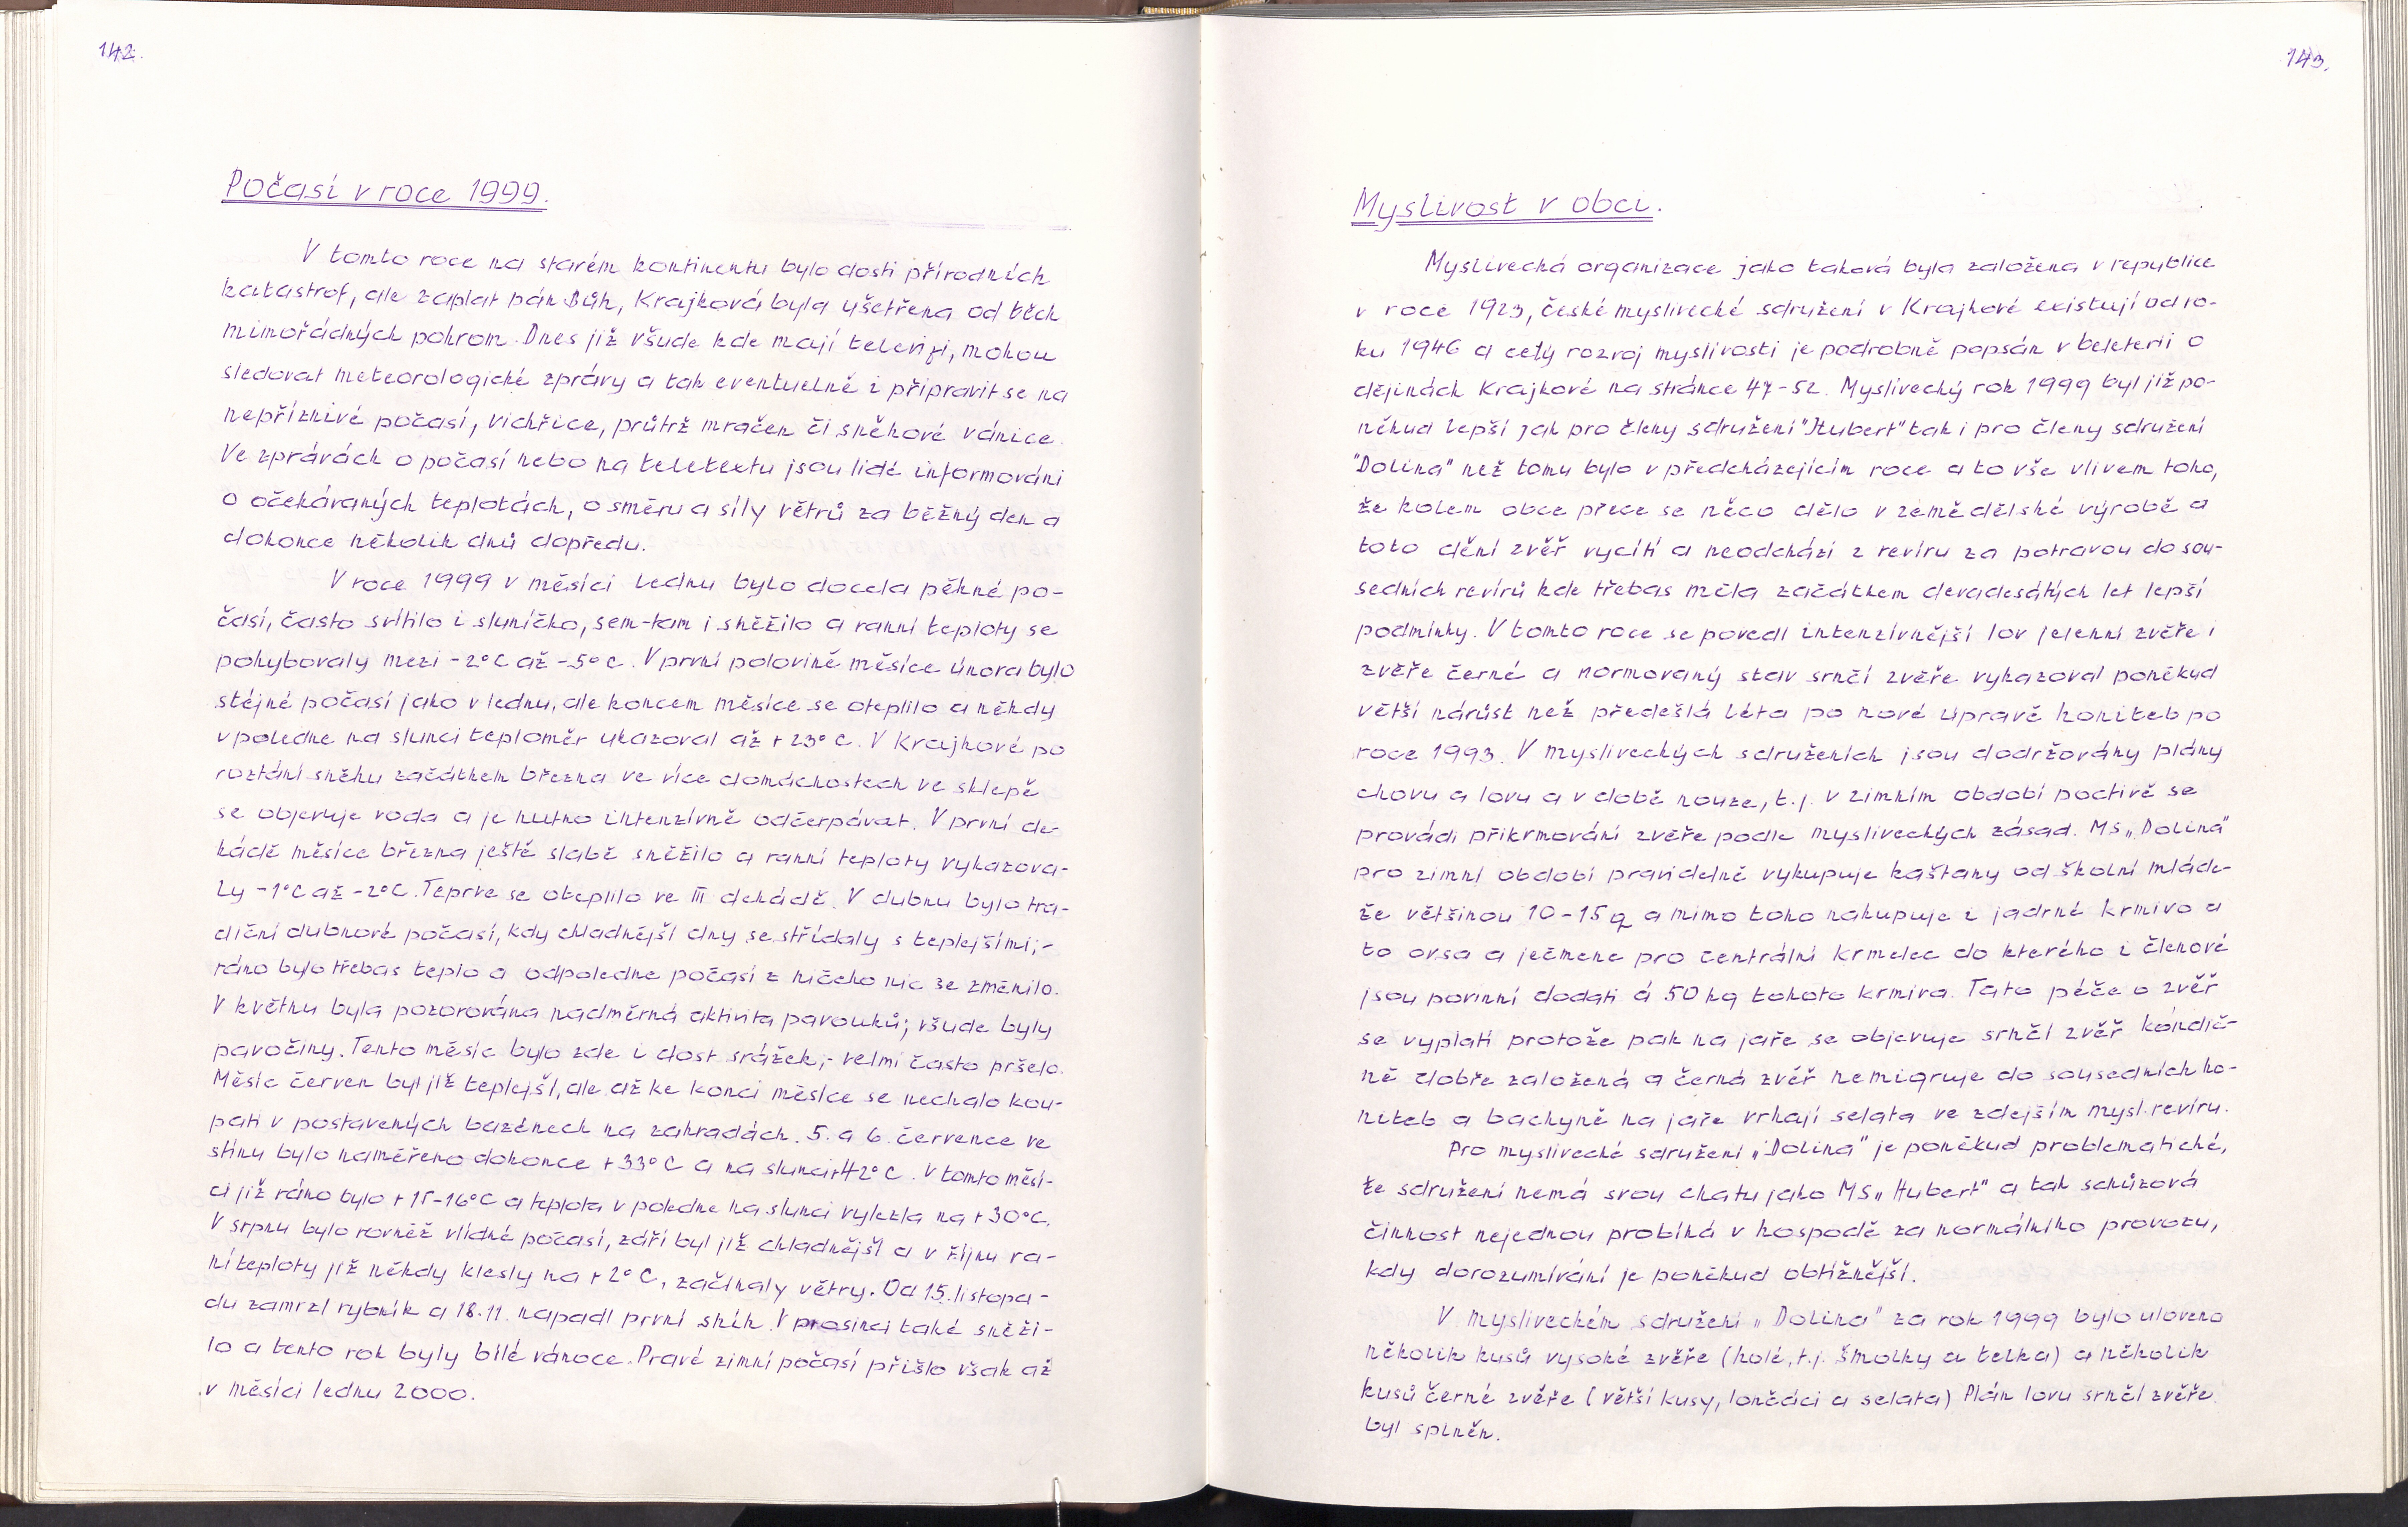 142.
Počasí v roce 1999.
V tomto roce na starém kontinentu bylo dosti přírodních
katastrof, ale zaplat pán Bůh, Krajková byla ušetřena od těch
mimořádných pohrom. Dnes již všude kde mají televizi, mohou
sledovat meteorologické zprávy a tak eventuelně i připravit se na
nepříznivé počasí, vichřice, průtrž mračen či sněhové vánice.
Ve zprávách o počasí nebo na teletextu jsou lidé informováni
o očekávaných teplotách, o směru a síly větrů za běžný den a
dokonce několik dnů dopředu.
V roce 1999 v měsíci lednu bylo docela pěkné po-
časí, často svítilo i sluníčko, sem-tam i sněžilo a ranní teploty se
pohybovaly mezi -2°C až -5°C. V první polovině měsíce února bylo
stéjné počasí jako v lednu, ale koncem měsíce se oteplilo a někdy
v poledne na slunci teploměr ukazoval až +23°C. V Krajkové po
roztání sněhu začátkem března ve více domácnostech ve sklepě
se objevuje voda a je nutno intenzívně odčerpávat. V první de-
kádě měsíce března ještě slabě sněžilo a ranní teploty vykazova-
ly -1°C až -2°C. Teprve se oteplilo ve III dekádě. V dubnu bylo tra-
diční dubnové počasí, kdy chladnější dny se střídaly s teplejšími;-
ráno bylo třebas teplo a odpoledne počasí z ničeho nic se změnilo.
V květnu byla pozorována nadměrná aktivita pavouků; všude byly
pavočiny. Tento měsíc bylo zde i dost srážek;- velmi často pršelo.
Měsíc červen byl již teplejší, ale až ke konci měsíce se nechalo kou-
pati v postavených bazénech na zahradách. 5. a 6. července ve
stínu bylo naměřeno dokonce +33°C a na slunci +42°C. V tomto měsí-
ci již ráno bylo +15-16°C a teplota v poledne na slunci vylezla na +30°C.
V srpnu bylo rovněž vlídné počasí, září byl již chladnější a v říjnu ra-
ní teploty již někdy klesly na +2°C, začínaly větry. Od 15. listopa-
du zamrzl rybník a 18.11. napadl první sníh. V prosinci také sněži-
lo a tento rok byly bílé vánoce. Pravé zimní počasí přišlo však až
v měsíci lednu 2000.
143.
Myslivost v obci.
Myslivecká organizace jako taková byla založena v republice
v roce 1923, české myslivecké sdružení v Krajkové existují od ro-
ku 1946 a celý rozvoj myslivosti je podrobně popsán v beleterii o
dějinách Krajkové na stránce 47-52. Myslivecký rok 1999 byl již po-
někud lepší jak pro členy sdružení "Hubert" tak i pro členy sdružení
"Dolina" než tomu bylo v předcházejícím roce a to vše vlivem toho,
že kolem obce přece se něco dělo v zemědělské výrobě a
toto dění zvěř vycítí a neodchází z revíru za potravou do sou-
sedních revírů kde třebas měla začátkem devadesátých let lepší
podmínky. V tomto roce se povedl intenzívnější lov jelenní zvěře i
zvěře černé a normovaný stav srnčí zvěře vykazoval poněkud
větší nárůst než předešlá léta po nové úpravě honiteb po
roce 1993. V mysliveckých sdruženích jsou dodržovány plány
chovu a lovu a v době nouze, t.j. v zimním období poctivě se
provádí přikrmování zvěře podle mysliveckých zásad. MS „Dolina"
pro zimní období pravidelně vykupuje kaštany od školní mláde-
že většinou 10-15 q a mimo toho nakupuje i jadrné krmivo a
to ovsa a ječmene pro centrální krmelec do kterého i členové
jsou povinní dodati á 50 kg tohoto krmiva. Tato péče o zvěř
se vyplatí protože pak na jaře se objevuje srnčí zvěř kóndič-
ně dobře založená a černá zvěř nemigruje do sousedních ho-
niteb a bachyně na jaře vrhají selata ve zdejším mysl. revíru.
Pro myslivecké sdružení „Dolina" je poněkud problematické,
že sdružení nemá svou chatu jako MS „Hubert" a tak schůzová
činnost nejednou probíhá v hospodě za normálního provozu,
kdy dorozumívání je poněkud obtížnější.
V mysliveckém sdružení „Dolina" za rok 1999 bylo uloveno
několik kusů vysoké zvěře (holé, t.j. šmolky a telka) a několik
kusů černé zvěře (větší kusy, lončáci a selata) Plán lovu srnčí zvěře
byl splněn.